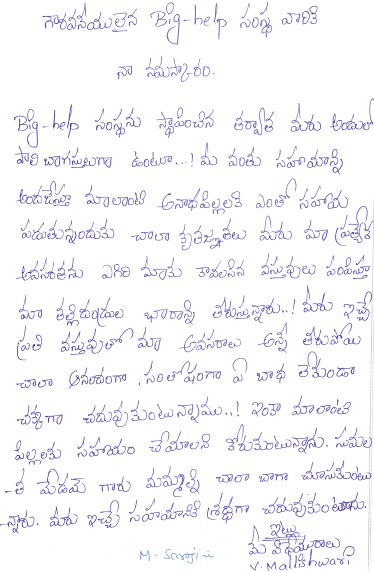 గౌరవనీయులైన Big-help సంస్థ వారికి
నా నమస్కారం.
Big-help సంస్థను స్థాపించిన తర్వాత మీరు అందులో
పాలి బాగస్తులుగా ఉంటూ...! మీ వంతు సహాయాన్ని
అందచేస్తూ మాలాంటి అనాధపిల్లలకి ఎంతో సహాయ
పడుతున్నందుకు చాలా కృతజ్ఞతలు మీరు మా ప్రత్యేక
అవసరతను ఎరిగి మాకు కావలసిన వస్తువులు పంపిస్తూ
మా తల్లిదండ్రుల భారాన్ని తీరుస్తున్నారు..! మీరు ఇచ్చే
ప్రతి వస్తువులో మా అవసరాలు అన్నీ తీరుపోయి
చాలా ఆనందంగా, సంతోషంగా ఏ బాధ లేకుండా
చక్కగా చదువుకుంటున్నాము..! ఇంకా మాలాంటి
పిల్లలకు సహాయం చేయాలని కోరుకుంటున్నాను. సుమల
-త మేడమ్ గారు మమ్మల్ని చాలా బాగా చూసుకుంటు
-న్నారు. మీరు ఇచ్చే సహాయానికి శ్రద్ధగా చదువుకుంటాను.
ఇట్లు
మీ విధేయురాలు
M. Sarojini
V. Mallishwari